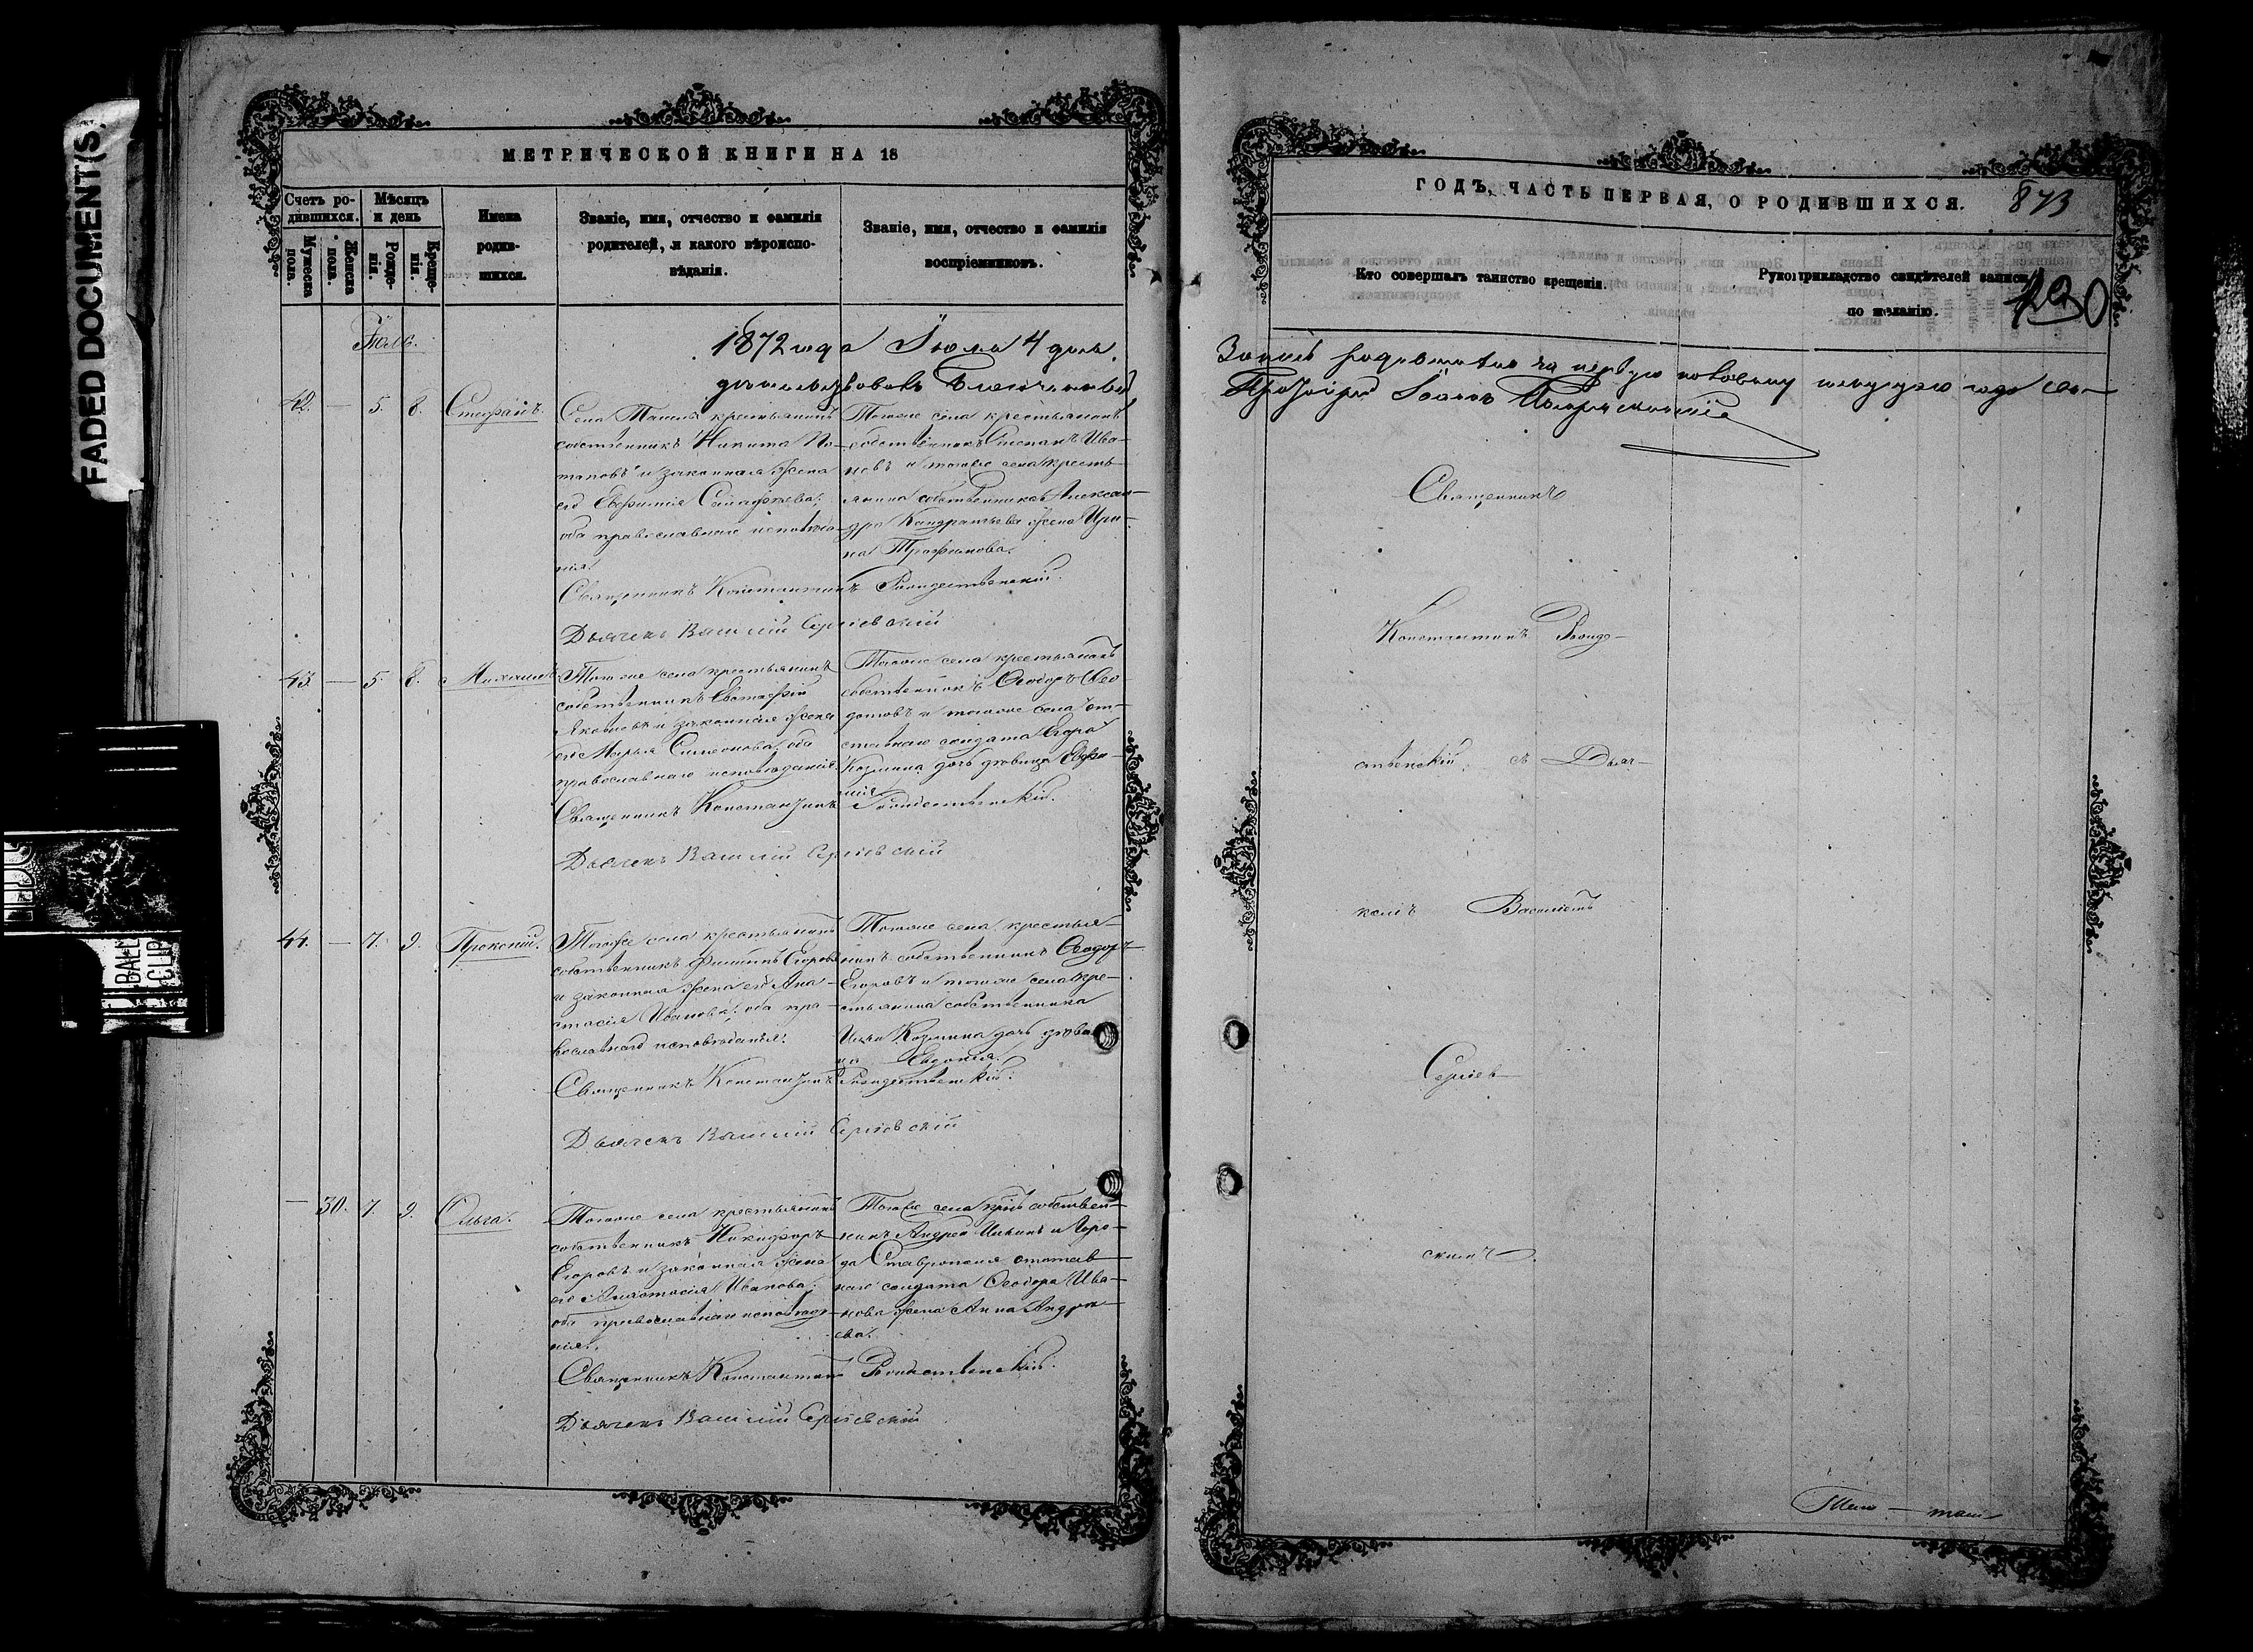 FADED DOCUMENT(S)
МЕТРИЧЕСКОЙ КНИГИ НА 18
Счетъ родившихся.
Мужеска пола.
Женска пола.
Мѣсяцъ и день
Рожденія.
Крещенія.
Имена родившихся.
Званіе, имя, отчество и фамилія родителей, и какого вѣроисповѣданія.
Званіе, имя, отчество и фамилія воспріемниковъ.
Іюль.
1872 года Іюля 4 дня
свидѣтельствовалъ Благочинный
42. — 5. 8. Стефанъ.
Села Ташлы крестьянинъ
собственникъ Никита По-
таповъ и законная жена
его Евфимія
оба православнаго исповѣда-
нія.
Тогоже села крестьянинъ
собственникъ Степанъ Ива-
новъ и тогоже села кресть-
янина собственника Алексан-
дра Кондратьева жена Ири-
на Трофимова.
Священникъ Константинъ Рождественскій.
Дьячекъ Василій Сергіевскій
43. — 5. 8. Михаилъ.
Тогоже села крестьянинъ
собственникъ Евстафій
Яковлевъ и законная жена
его Марья Симеонова, оба
православнаго исповѣданія.
Тогоже села крестьянинъ
собственникъ Ѳеодоръ Ѳео-
дотовъ и тогоже села от-
ставнаго солдата Егора
Козмина дочь дѣвица Евфи-
мія.
Священникъ Константинъ Рождественскій.
Дьячекъ Василій Сергіевскій
44. — 7. 9. Прокопій.
Тогоже села крестьянинъ
собственникъ Филипъ Егоровъ
и законная жена его Ана-
стасія Иванова, оба пра-
вославнаго исповѣданія.
Тогоже села крестья-
нинъ собственникъ Ѳеодоръ
Егоровъ и тогоже села кре-
стьянина собственника
Ильи Козмина дочь дѣви-
ца Евдокія.
Священникъ Константинъ Рождественскій.
Дьячекъ Василій Сергіевскій
— 30. 7. 9. Ольга.
Тогоже села крестьянинъ
собственникъ Никифоръ
Егоровъ и законная жена
его Анастасія Иванова,
оба православнаго исповѣда-
нія.
Тогоже села крест. собствен-
никъ Андрей Ильинъ и горо-
да Ставрополя отстав-
наго солдата Ѳеодора Ива-
нова жена Анна Андре-
ева.
Священникъ Константинъ Рождественскій.
Дьячекъ Василій Сергіевскій
ГОДЪ, ЧАСТЬ ПЕРВАЯ, О РОДИВШИХСЯ.
873
Кто совершалъ таинство крещенія.
Рукоприкладство свидѣтелей записи по желанію.
430
Запись родившихся за первую половину текущаго года
Протоіерей Іоаннъ
Священникъ
Константинъ Рожде-
ственскій съ Дьяч-
комъ Василіемъ
Сергіев-
скимъ.